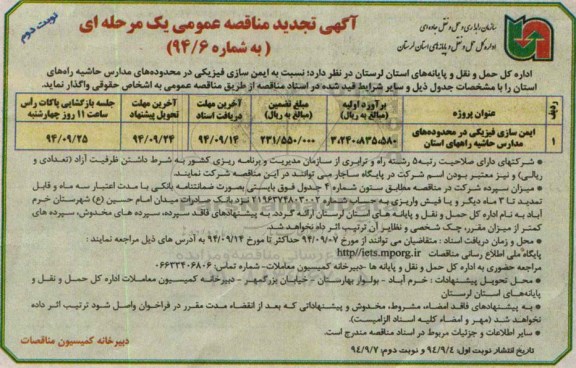 نوبت دوم
آگهی تجدید مناقصه عمومی یک مرحله ای
( به شماره ۹۴/۶ )
سازمان راهداری و حمل و نقل جاده ای
اداره کل حمل و نقل و پایانه های استان لرستان
اداره کل حمل و نقل و پایانه‌های استان لرستان در نظر دارد؛ نسبت به ایمن سازی فیزیکی در محدوده‌های مدارس حاشیه راه‌های
استان را با مشخصات جدول ذیل و سایر شرایط قید شده در اسناد مناقصه از طریق مناقصه عمومی به اشخاص حقوقی واگذار نماید.
ردیف | عنوان پروژه | برآورد اولیه (مبالغ به ریال) | مبلغ تضمین (مبالغ به ریال) | آخرین مهلت دریافت اسناد | آخرین مهلت تحویل پیشنهاد | جلسه بازگشایی پاکات رأس ساعت ۱۱ روز چهارشنبه
۱ | ایمن سازی فیزیکی در محدوده‌های مدارس حاشیه راههای استان | ۳۰۲۴۰۰۸۳۵۰۵۸۰ | ۲۳۱/۵۵۰/۰۰۰ | ۹۴/۰۹/۱۴ | ۹۴/۰۹/۲۴ | ۹۴/۰۹/۲۵
● شرکتهای دارای صلاحیت رتبه۵ رشته راه و ترابری از سازمان مدیریت و برنامه ریزی کشور به شرط داشتن ظرفیت آزاد (تعدادی و
ریالی) و نیز معتبر بودن اسم شرکت در پایگاه ساجار می توانند در این مناقصه شرکت نمایند.
● میزان سپرده شرکت در مناقصه مطابق ستون شماره ۴ جدول فوق بایستی بصورت ضمانتنامه بانکی با مدت اعتبار سه ماه و قابل
تمدید تا ۳ ماه دیگر و یا فیش واریزی به حساب شماره نزد بانک صادرات میدان امام حسین (ع) شهرستان خرم
آباد به نام اداره کل حمل و نقل و پایانه های استان لرستان ارائه گردد. به پیشنهادهای فاقد سپرده، سپرده های مخدوش، سپرده های
کمتر از میزان مقرر، چک شخصی و نظایر آن ترتیب اثر داده نخواهد شد.
● محل و زمان دریافت اسناد : متقاضیان می توانند از مورخ ۹۴/۰۹/۰۷ حداکثر تا مورخ ۹۴/۰۹/۱۴ به آدرس های ذیل مراجعه نمایند :
پایگاه ملی اطلاع رسانی مناقصات http//iets.mporg.ir
مراجعه حضوری به اداره کل حمل و نقل و پایانه ها -دبیرخانه کمیسیون معاملات- شماره تماس: ۰۶۶۳۳۴۰۶۸۰۶
● محل تحویل پیشنهادات : خرم آباد - بولوار بهارستان - خیابان بزرگمهر - دبیرخانه کمیسیون معاملات اداره کل حمل و نقل و
پایانه‌های استان لرستان
● به پیشنهادهای فاقد امضاء، مشروط، مخدوش و پیشنهاداتی که بعد از انقضاء مدت مقرر در فراخوان واصل شود ترتیب اثر داده
نخواهد شد (مهر و امضاء کلیه اسناد الزامیست).
● سایر اطلاعات و جزئیات مربوط در اسناد مناقصه مندرج است.
تاریخ انتشار نوبت اول: ۹۴/۹/۴ و نوبت دوم: ۹۴/۹/۷
دبیرخانه کمیسیون مناقصات